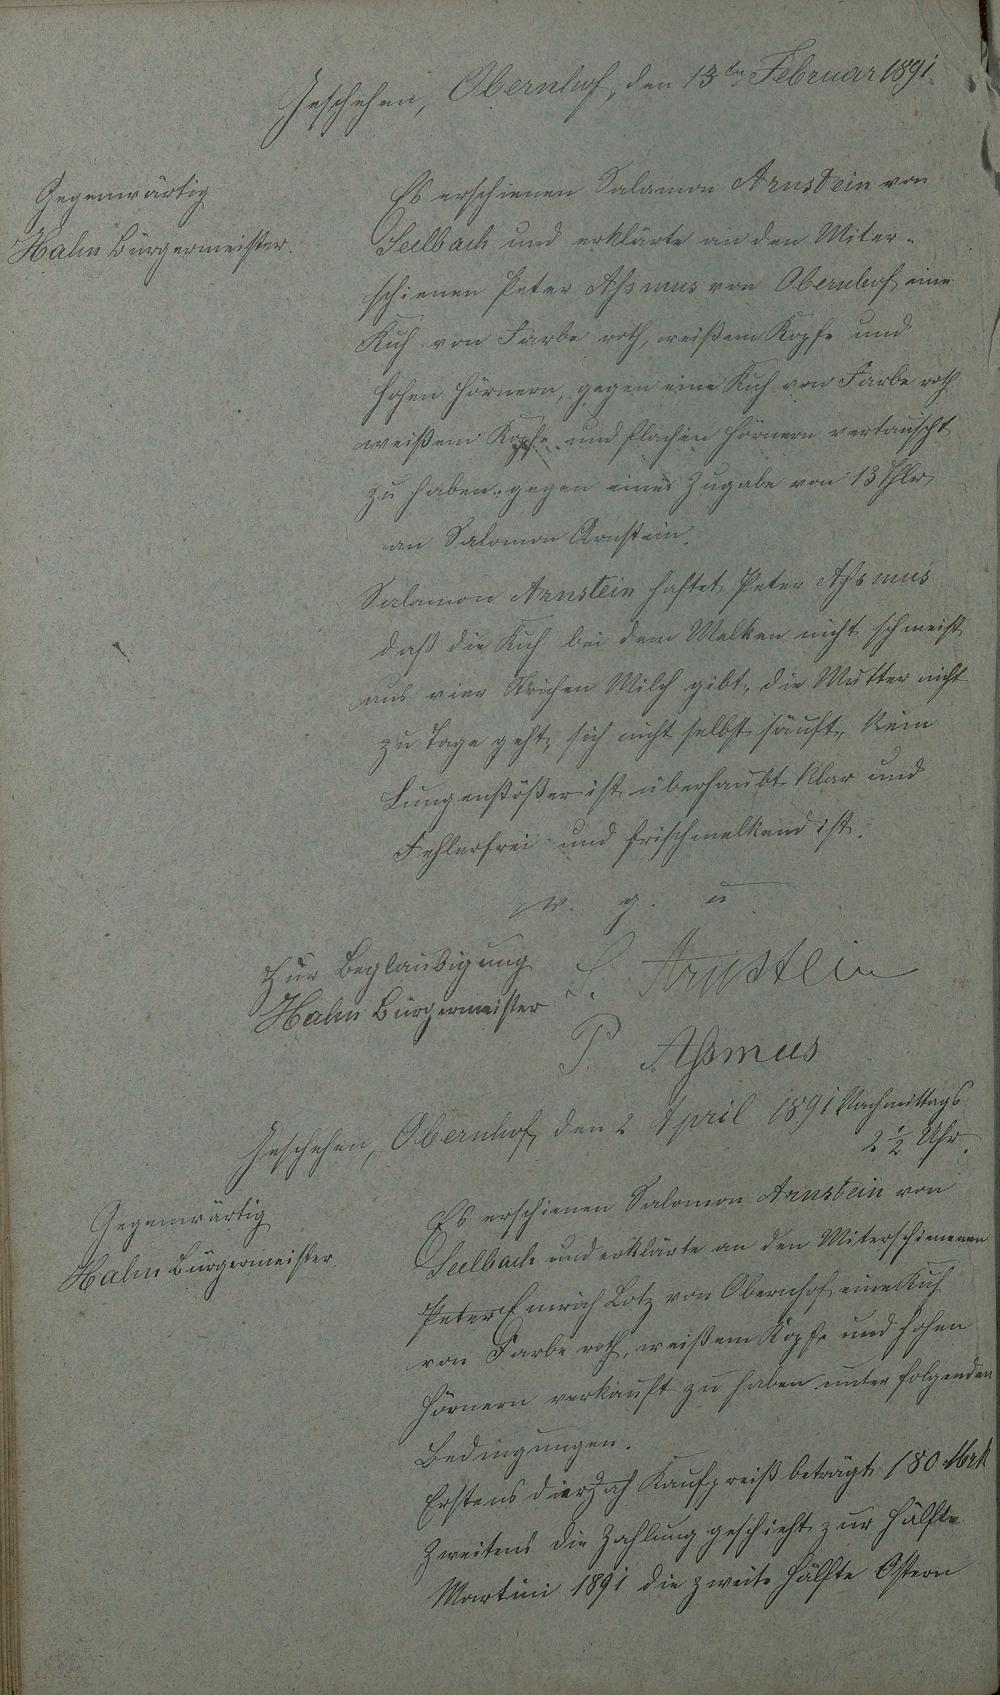 Geschehen, Obernhof, den 13ten Februar 1891.
Gegenwärtig
Hahn Bürgermeister.
Es erschienen Salamon Arnstein von
Seelbach und erklärte an den Miter-
schienen Peter Aßmus von Obernhof eine
Kuh von Farbe roth, weißem Kopfe und
hohen Hörnern, gegen eine Kuh von Farbe roth
weißem Kopfe und flachen Hörnern vertauscht
zu haben gegen einer Zugabe von 13 Thlr
an Salomon Arnstein.
Salamon Arnstein haftet Peter Aßmus
daß die Kuh bei dem Melken nicht schmeist
aus vier Strichen Milch gibt, die Mutter nicht
zu Tage geht, sich nicht selbst säuft, kein
Lungenstößer ist überhaubt klar und
Fehlerfrei und frischmelkend ist.
v. g. u
Zur Beglaubigung
Hahn Bürgermeister
S. Arnstein
P. Aßmus
Geschehen, Obernhof, den 2 April 1891 Nachmittags
2 1/2 Uhr.
Gegenwärtig
Hahn Bürgermeister
Es erschienen Salomon Arnstein von
Seelbach und erklärte an den Miterschienenen
Peter Emrich Lotz von Obernhof eine Kuh
von Farbe roth, weißem Kopfe und hohen
Hörnern verkauft zu haben unter folgenden
Bedingungen.
Erstens der Kaufpreiß beträgt 180 Mrk
Zweitens die Zahlung geschieht zur Hälfte
Martini 1891 die zweite Hälfte Ostern